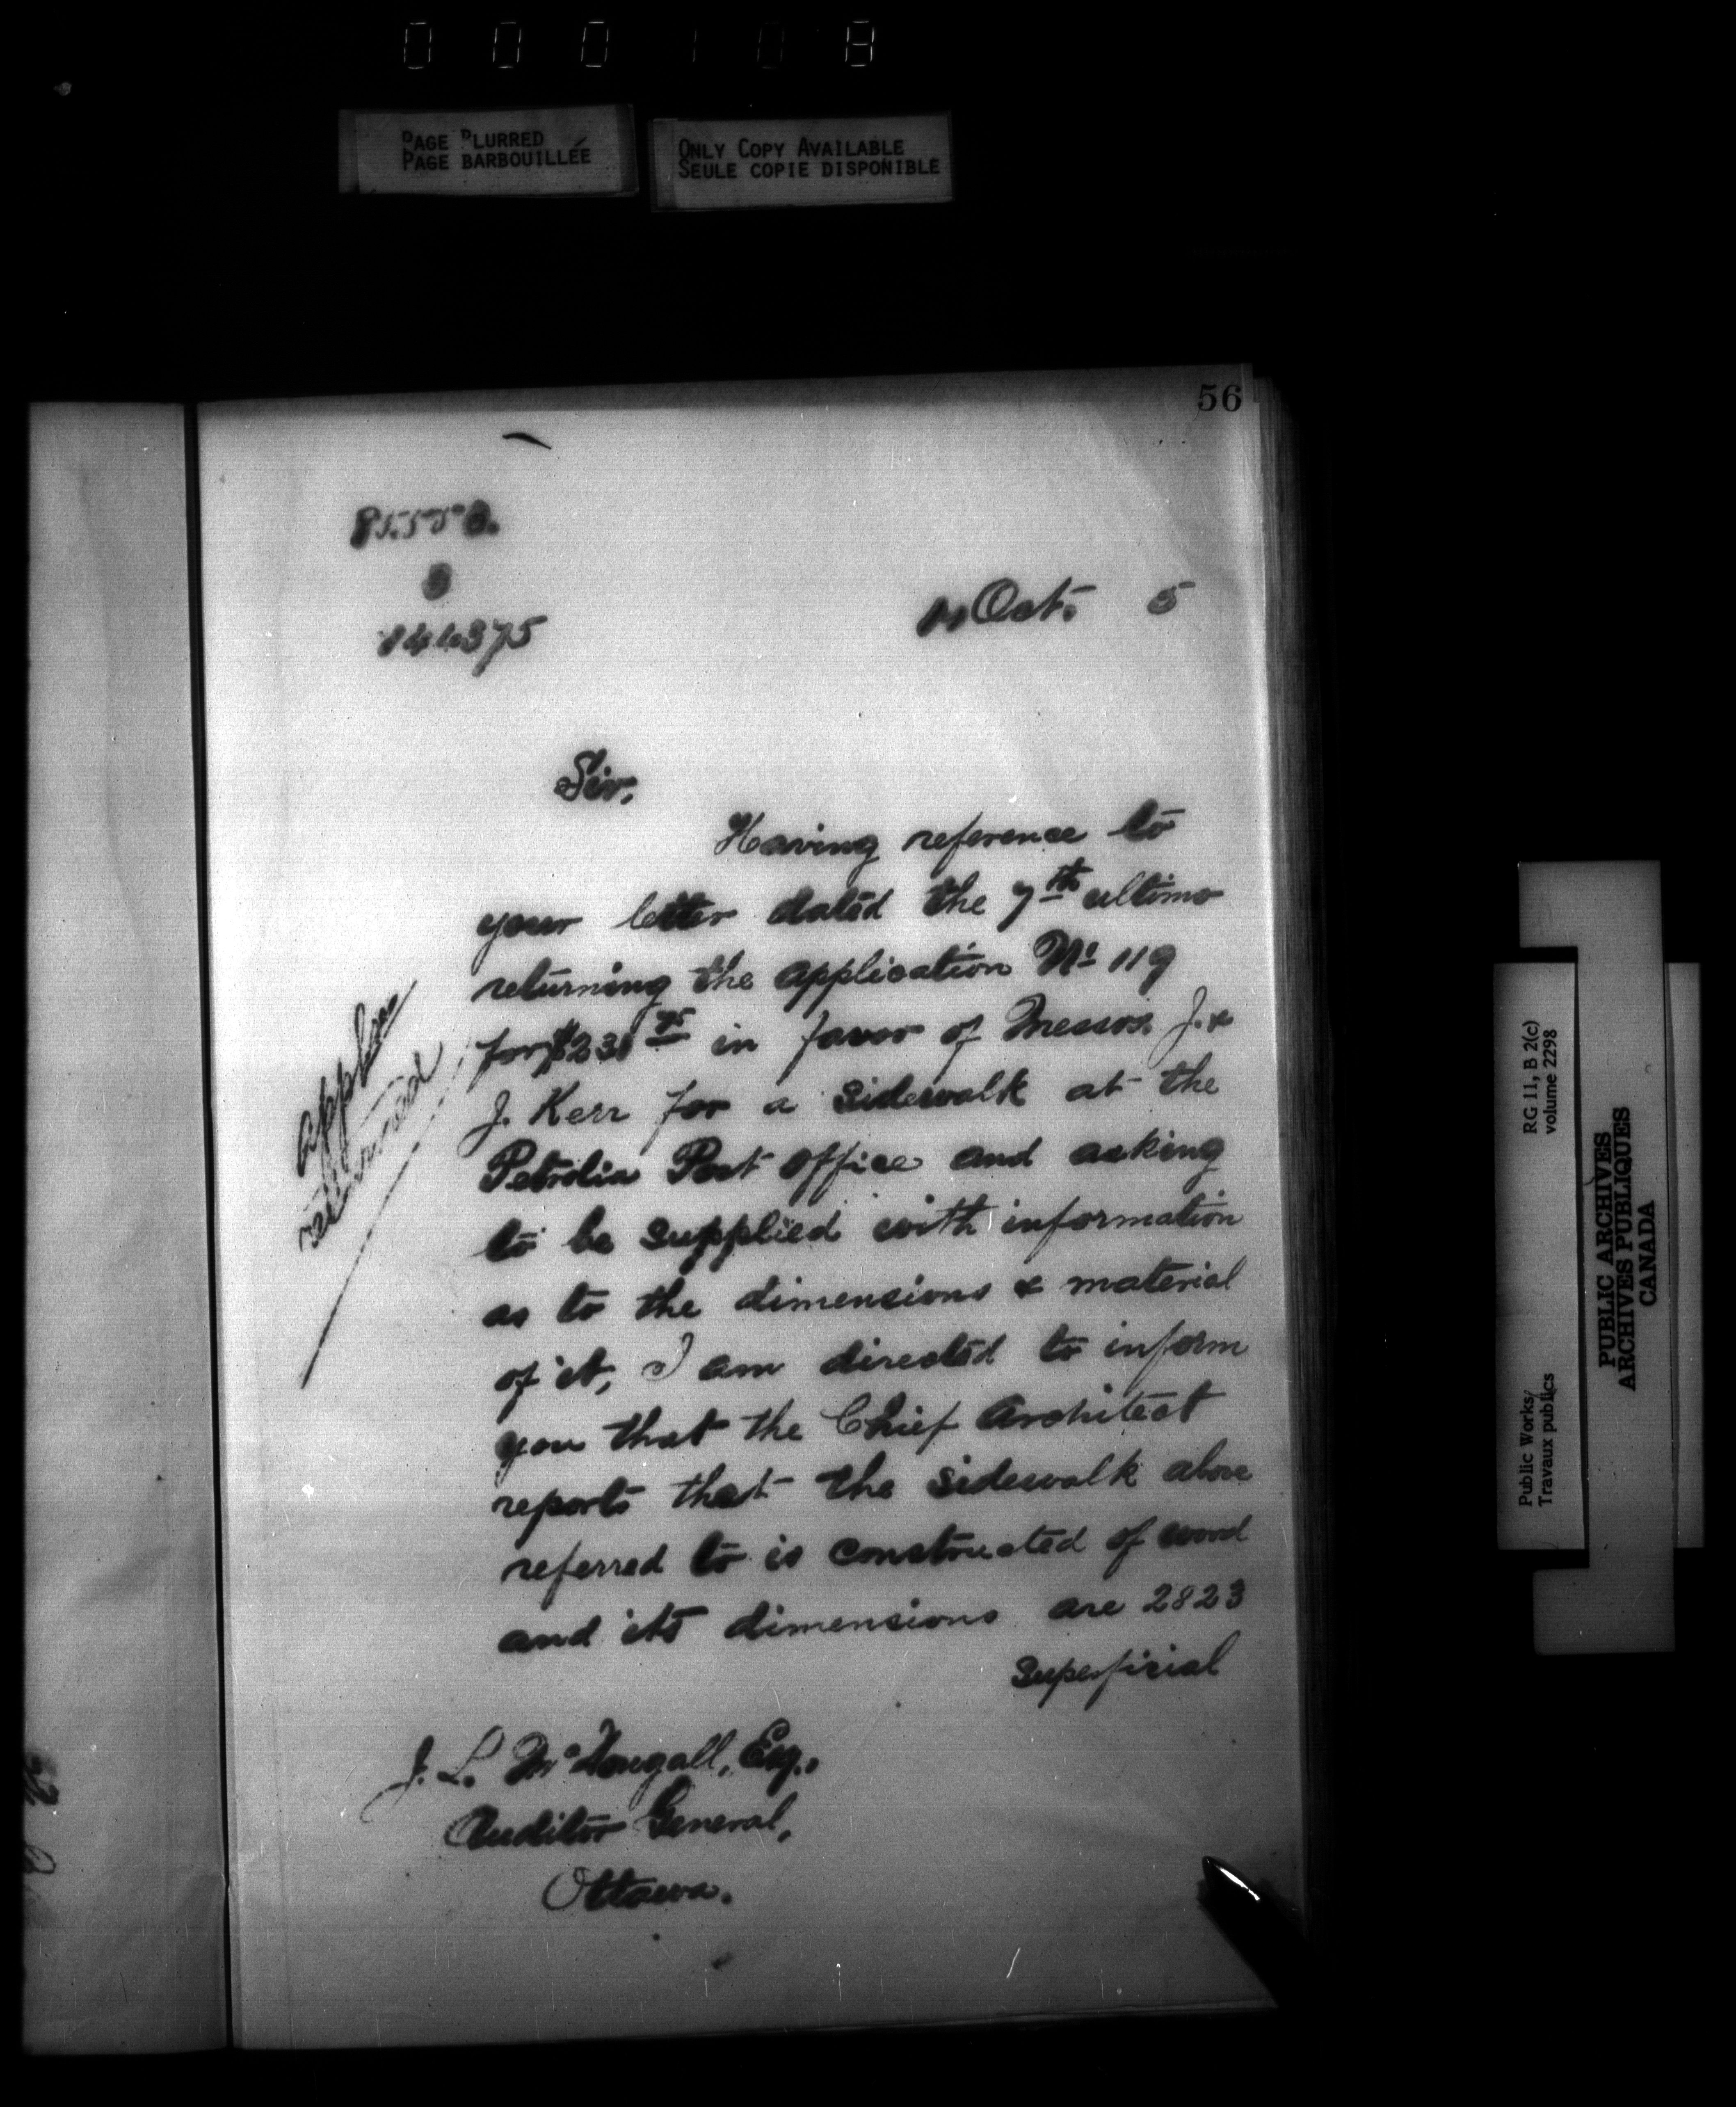 0 0 0 1 0 8
PAGE BLURRED
PAGE BARBOUILLÉE
ONLY COPY AVAILABLE
SEULE COPIE DISPONIBLE
56
Oct. 5
Sir,
Having reference to
your letter dated the 7th ultimo
returning the application No 119
in favor of Messrs. J. &
J. Kerr for a sidewalk at the
Petrolia Post Office and asking
to be supplied with information
as to the dimensions & material
of it, I am directed to inform
you that the Chief Architect
reports that the sidewalk above
referred to is constructed of wood
and its dimensions are 2823
superficial
appln
returned
J. L. McDougall, Esq.,
Auditor General,
Ottawa.
RG 11, B 2(c)
volume 2298
Public Works/
Travaux publics
PUBLIC ARCHIVES
ARCHIVES PUBLIQUES
CANADA